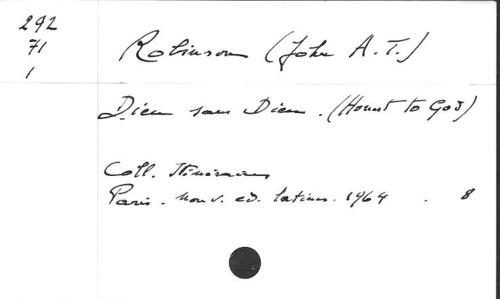 292
71
1
Robinson (John A.T.)
Dieu sans Dieu. (Honest to God)
Coll. Itinéraires
Paris. nouv. ed. latines. 1964 . 8